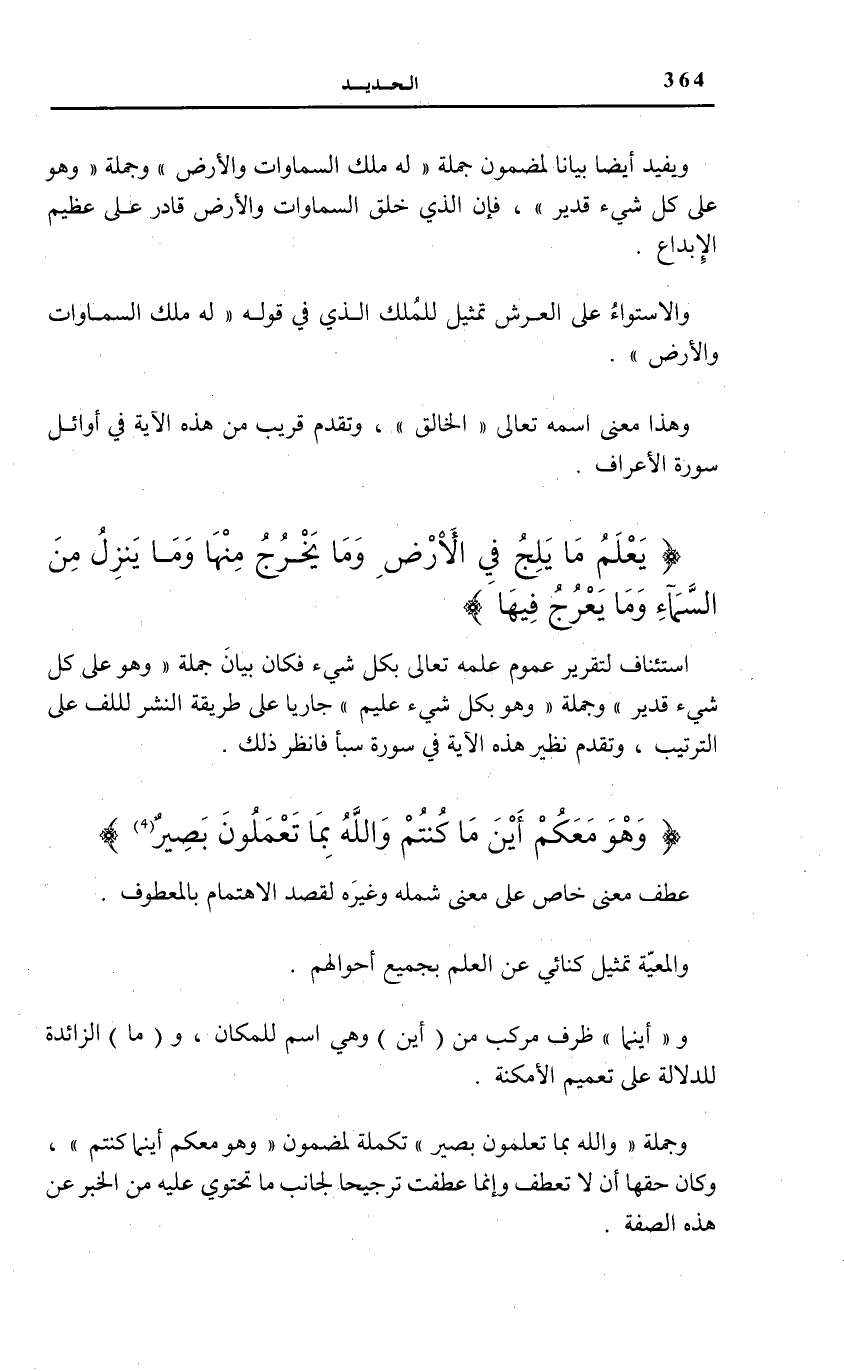 364
الـحـديـد
ويفيد أيضا بيانا لمضمون جملة « له ملك السماوات والأرض » وجملة « وهو
على كل شيء قدير » ، فإن الذي خلق السماوات والأرض قادر عـلى عظيم
الإبداع .
والاستواءُ على العـرش تمثيل للمُلك الـذي في قولـه « له ملك السمـاوات
والأرض » .
وهذا معنى اسمه تعالى « الخالق » ، وتقدم قريب من هذه الآية في أوائـل
سورة الأعراف .
﴿ يَعْلَمُ مَا يَلِجُ فِي الْأَرْضِ وَمَا يَخْـرُجُ مِنْهَا وَمَـا يَنزِلُ مِنَ
السَّمَآءِ وَمَا يَعْرُجُ فِيهَا ﴾
استئناف لتقرير عموم علمه تعالى بكل شيء فكان بيانَ جملة « وهو على كل
شيء قدير » وجملة « وهو بكل شيء عليم » جاريا على طريقة النشر لللف على
الترتيب ، وتقدم نظير هذه الآية في سورة سبأ فانظر ذلك .
﴿ وَهْوَ مَعَكُمْ أَيْنَ مَا كُنتُمْ وَاللَّهُ بِمَا تَعْمَلُونَ بَصِيرٌ(4) ﴾
عطف معنى خاص على معنى شمله وغيرَه لقصد الاهتمام بالمعطوف .
والمعيّة تمثيل كنائي عن العلم بجميع أحوالهم .
و « أينما » ظرف مركب من ( أين ) وهي اسم للمكان ، و ( ما ) الزائدة
للدلالة على تعميم الأمكنة .
وجملة « والله بما تعلمون بصير » تكملة لمضمون « وهو معكم أينما كنتم » ،
وكان حقها أن لا تعطف وإنما عطفت ترجيحا لجانب ما تحتوي عليه من الخبر عن
هذه الصفة .